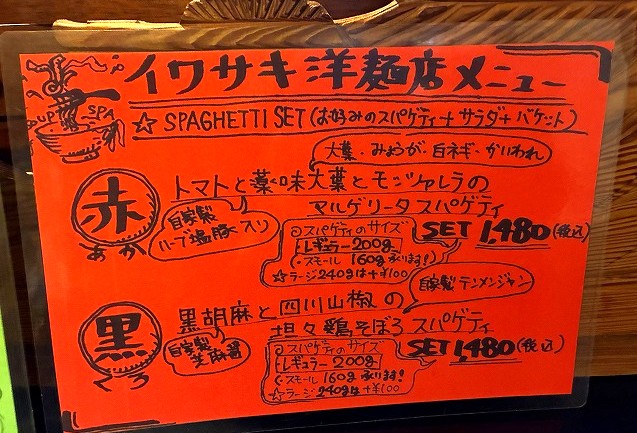 イワサキ洋麺店メニュー
SUP SPA
☆ SPAGHETTI SET (お好みのスパゲティ+サラダ+バケット)
大葉・みょうが・白ネギ・かいわれ
赤
あか
トマトと薬味大葉とモッツァレラの
マルゲリータスパゲティ
自家製
ハーブ塩豚入り
◎スパゲティのサイズ
レギュラー200g
・スモール 160g承ります!
☆ラージ240gは+¥100
SET 1,480(税込)
自家製テンメンジャン
黒
くろ
黒胡麻と四川山椒の
坦々鶏そぼろスパゲティ
自家製
芝麻醤
◎スパゲティのサイズ
レギュラー200g
・スモール160g承ります!
☆ラージ240gは+¥100
SET 1,480(税込)